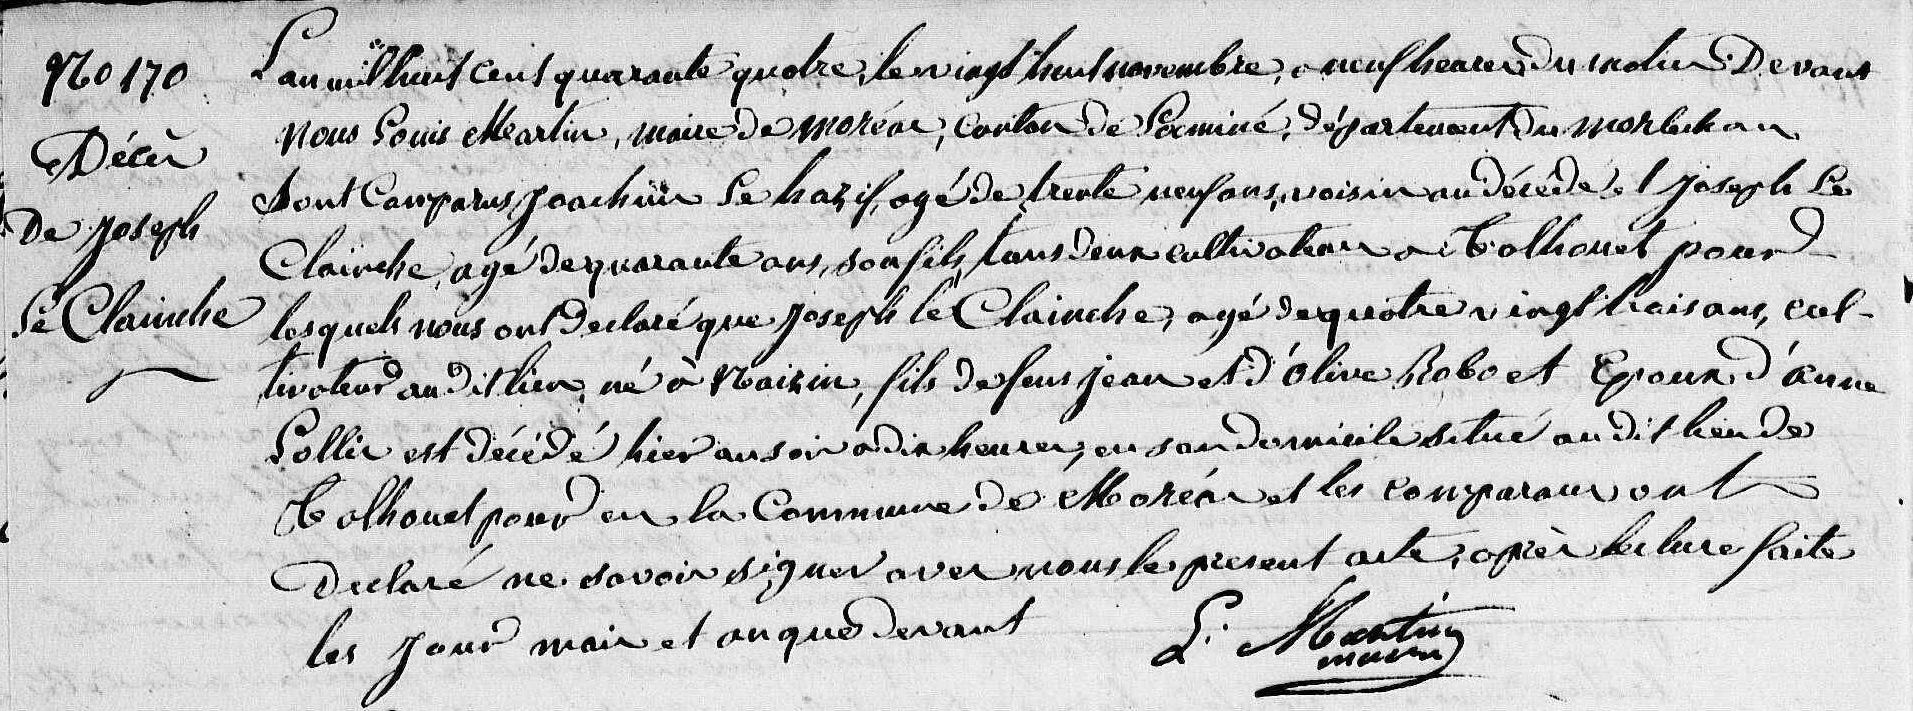 No 170
Décès
De Joseph
Le Clainche
L'an mil huit cent quarante quatre, le vingt huit novembre, a neuf heures du matin. Devant
Nous Louis Martin, maire de Moréac, canton de Locminé, département du Morbihan
Sont Comparus Joachim Le hazif, agé de trente neuf ans, voisin au décédé et Joseph Le
Clainche, agé de quarante ans, son fils, tous deux cultivateurs a Tolhouet pour
lesquels nous ont declaré que Joseph le Clainche, agé de quatre vingt trois ans, cul-
tivateur au dit lieu, né à Naizin, fils de feus Jean et d'Olive Robo et Epoux d'anne
Lollic est décédé hier au soir a dix heures, en son domicile situé au dit lieu de
Tolhouet pour en la Commune de Moréac et les comparans ont
Declaré ne savoir signer avec nous le present acte, après lecture faite
les Jour mois et an que devant
L. Martin
maire